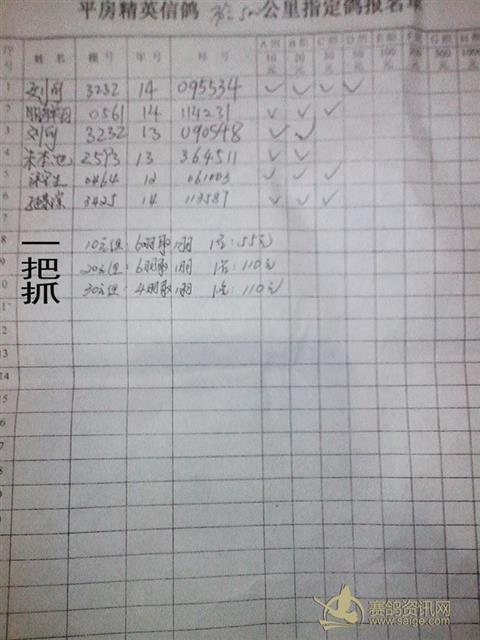 平房精英信鸽 500公里指定鸽报名单
序号 姓名 棚号 年号 环号 A组10元 B组20元 C组30元 D组50元 E组100元 F组200元 G组500元 H组1000元
1 刘向 3232 14 095534 ✓ ✓ ✓ ✓
2 0561 14 114231 ✓ ✓ ✓
3 刘向 3232 13 090548 ✓ ✓
4 2593 13 364511 ✓ ✓
5 0464 12 061003 ✓ ✓ ✓
6 3425 14 113587 ✓ ✓ ✓
7
8 10元组:6羽取1羽 1名:55元
9 20元组:6羽取1羽 1名:110元
10 30元组:4羽取1羽 1名:110元
一把抓
11
12
13
14
15
赛鸽资讯网
www.saige.com